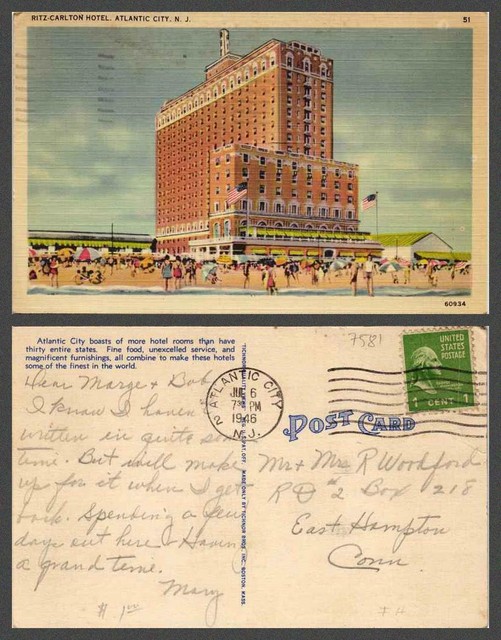 RITZ-CARLTON HOTEL, ATLANTIC CITY, N. J.
51
60934
Atlantic City boasts of more hotel rooms than have
thirty entire states. Fine food, unexcelled service, and
magnificent furnishings, all combine to make these hotels
some of the finest in the world.
Dear Marge + Bob
I know I haven't
written in quite some
time. But will make
up for it when I get
back. Spending a few
days out here + Having
a grand time.
Mary
$ 1.00
MADE ONLY BY TICHNOR BROS., INC., BOSTON, MASS.
ATLANTIC CITY
JUL 6
7 PM
1946
N.J.
7581
UNITED
STATES
POSTAGE
1 CENT 1
POST CARD
Mr + Mrs R Woodford
RD #2 Box 218
East Hampton
Conn.